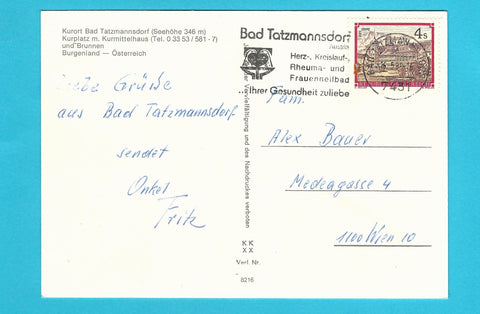 Kurort Bad Tatzmannsdorf (Seehöhe 346 m)
Kurplatz m. Kurmittelhaus (Tel. 0 33 53 / 581 - 7)
und Brunnen
Burgenland — Österreich
Liebe Grüße
aus Bad Tatzmannsdorf
sendet
Onkel
Fritz
Bad Tatzmannsdorf
Herz-, Kreislauf-,
Rheuma- und
Frauenheilbad
...Ihrer Gesundheit zuliebe
4 S
7431
Fam.
Alex Bauer
Medeagasse 4
1100 Wien 10
der Vervielfältigung und des Nachdruckes verboten
KK
XX
Verl. Nr.
8216